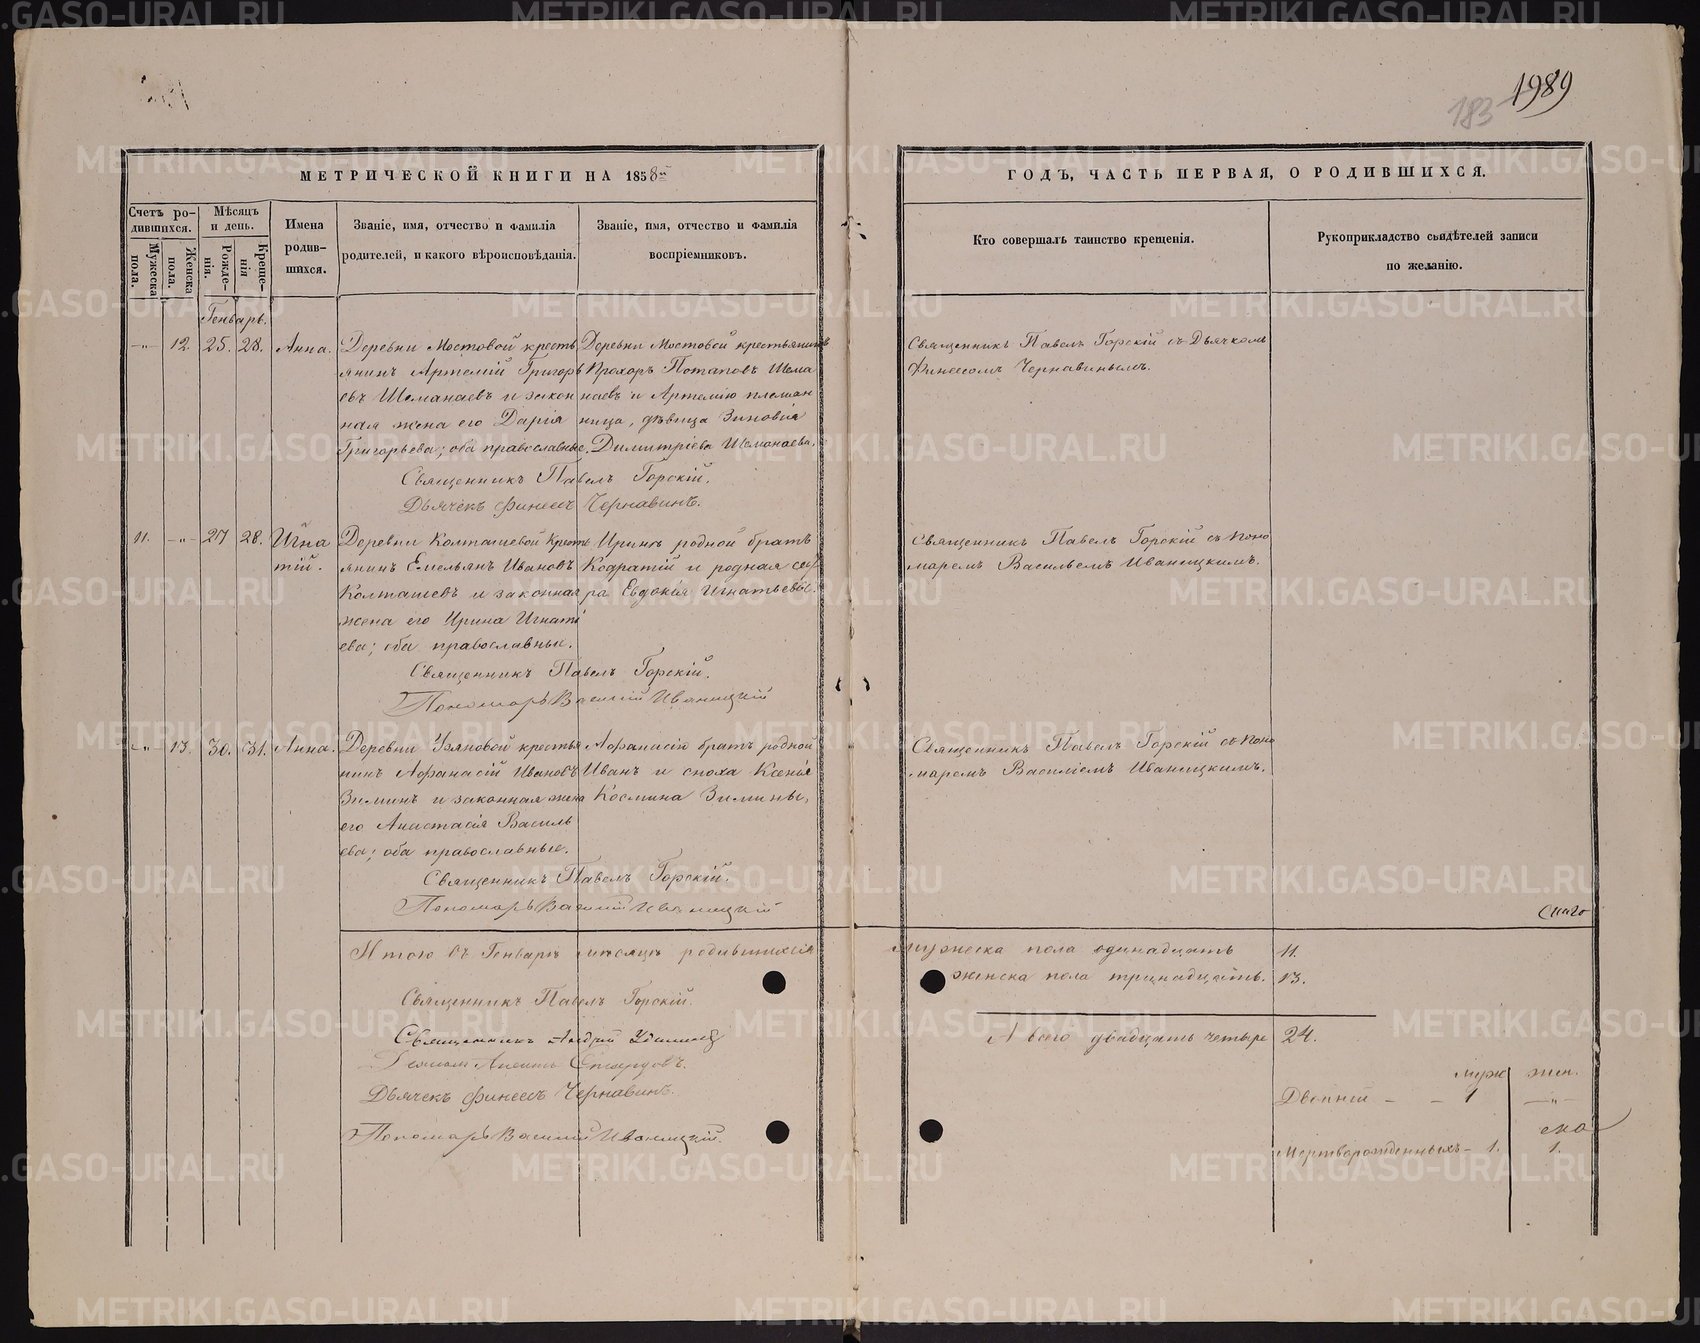 1989
183
МЕТРИЧЕСКОЙ КНИГИ НА 1858й
ГОДЪ, ЧАСТЬ ПЕРВАЯ, О РОДИВШИХСЯ.
Счетъ ро-
дившихся.
Мужеска
пола.
Женска
пола.
Мѣсяцъ
и день.
Рожде-
нія.
Креще-
нія
Имена
родив-
шихся.
Званіе, имя, отчество и фамилія
родителей, и какого вѣроисповѣданія.
Званіе, имя, отчество и фамилія
воспріемниковъ.
Кто совершалъ таинство крещенія.
Рукоприкладство свидѣтелей записи
по желанію.
Генварь.
—„— 12. 25. 28. Анна.
Деревни Мостовой кресть
янинъ Артемій Григорь
евъ Шеманаевъ и закон
ная жена его Дарія
Григорьева; оба православные.
Деревни Мостовой крестьянинъ
Прохоръ Потаповъ Шема
наевъ и Артемію племян
ница, дѣвица Зиновія
Димитріева Шеманаева.
Священникъ Павелъ Горскій съ Дьячкомъ
Финеесомъ Чернавинымъ.
Священникъ Павелъ Горскій.
Дьячекъ Финеесъ Чернавинъ.
11. —„— 27 28. Игна
тій.
Деревни Колташевой кресть
янинъ Емельянъ Ивановъ
Колташевъ и законная
жена его Ирина Игнать
ева; оба православные.
Иринѣ родной братъ
Кодратій и родная сес
ра Евдокія Игнатьевы.
Священникъ Павелъ Горскій съ Поно
маремъ Васильемъ Иваницкимъ.
Священникъ Павелъ Горскій.
Пономарь Василій Иваницкій
—„— 13. 30. 31. Анна.
Деревни Узяновой кресть
нинъ Афанасій Ивановъ
Зиминъ и законная жена
его Анастасія Василь
ева; оба православные.
Афанасію братъ родной
Иванъ и сноха Ксенія
Космина Зимины.
Священникъ Павелъ Горскій съ Поно
маремъ Василіемъ Иваницкимъ.
Священникъ Павелъ Горскій.
Пономарь Василій Иваницкій
Итого въ Генварѣ мѣсяцѣ родившихся
мужеска пола одинадцать 11.
женска пола тринадцать. 13.
А всего двадцать четыре 24.
Священникъ Павелъ Горскій.
Священникъ Андрей
Дьячекъ Финеесъ Чернавинъ.
Пономарь Василій Иваницкій.
муж жен.
Двоиней — — 1 —„—
Мертворожденныхъ — 1. 1.
METRIKI.GASO-URAL.RU